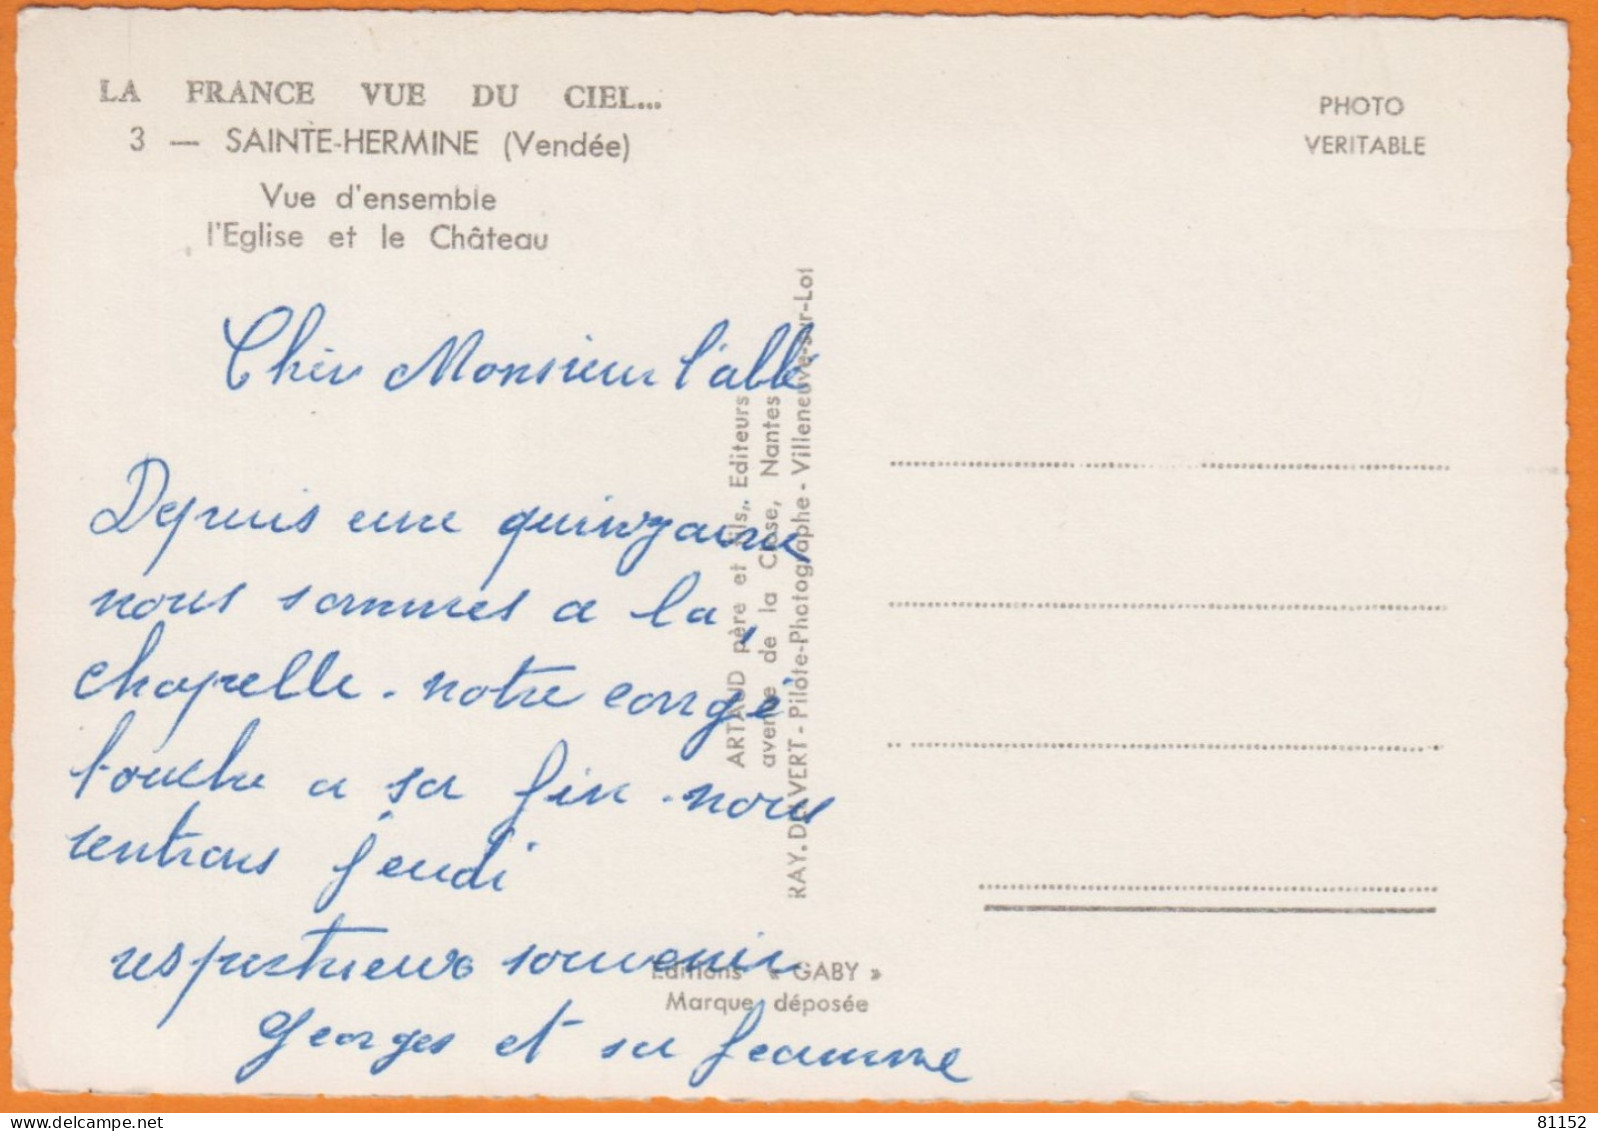 LA FRANCE VUE DU CIEL...
3 — SAINTE-HERMINE (Vendée)
Vue d'ensemble
l'Eglise et le Château
PHOTO
VERITABLE
Cher Monsieur l'abbé
Depuis une quinzaine
nous sommes a la
chapelle. notre congé
touche a sa fin. nous
rentrons jeudi
respectueux souvenir
Georges et sa femme
ARTAUD père et fils, Editeurs
avenue de la Close, Nantes
RAY. DELVERT - Pilote-Photographe - Villeneuve-sur-Lot
Editions « GABY »
Marque déposée
81152